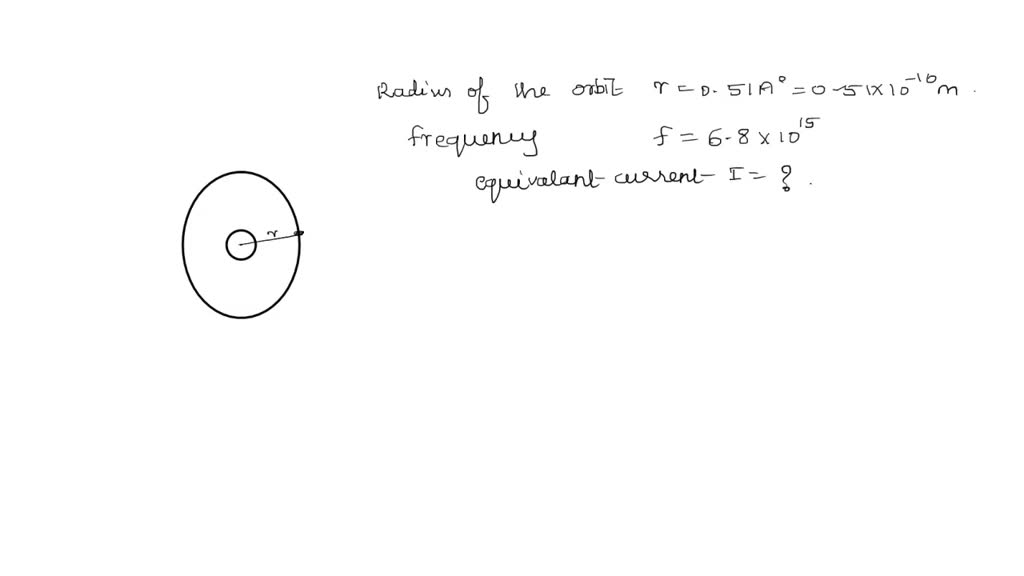 Radius of the orbit r = 0.51A° = 0.51×10⁻¹⁰m.
frequency f = 6.8×10¹⁵
equivalant current I = ?.
r